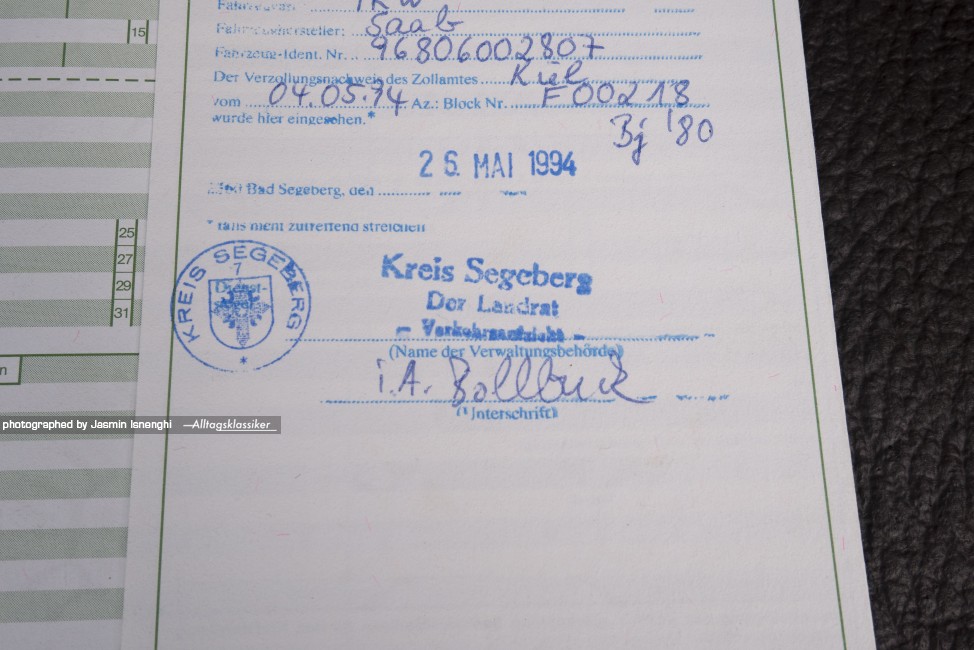 Fahrzeugart: PKW
Fahrzeughersteller: Saab
Fahrzeug-Ident. Nr. 96806002807
Der Verzollungsnachweis des Zollamtes Kiel
vom 04.05.94 Az.: Block Nr. F00218
wurde hier eingesehen.*
Bj '80
26. MAI 1994
Bad Segeberg, den
* falls nicht zutreffend streichen
KREIS SEGEBERG
7
Dienst-
siegel
*
Kreis Segeberg
Der Landrat
– Verkehrsaufsicht –
(Name der Verwaltungsbehörde)
i.A.
(Unterschrift)
15
25
27
29
31
n
photographed by Jasmin Isnenghi —Alltagsklassiker